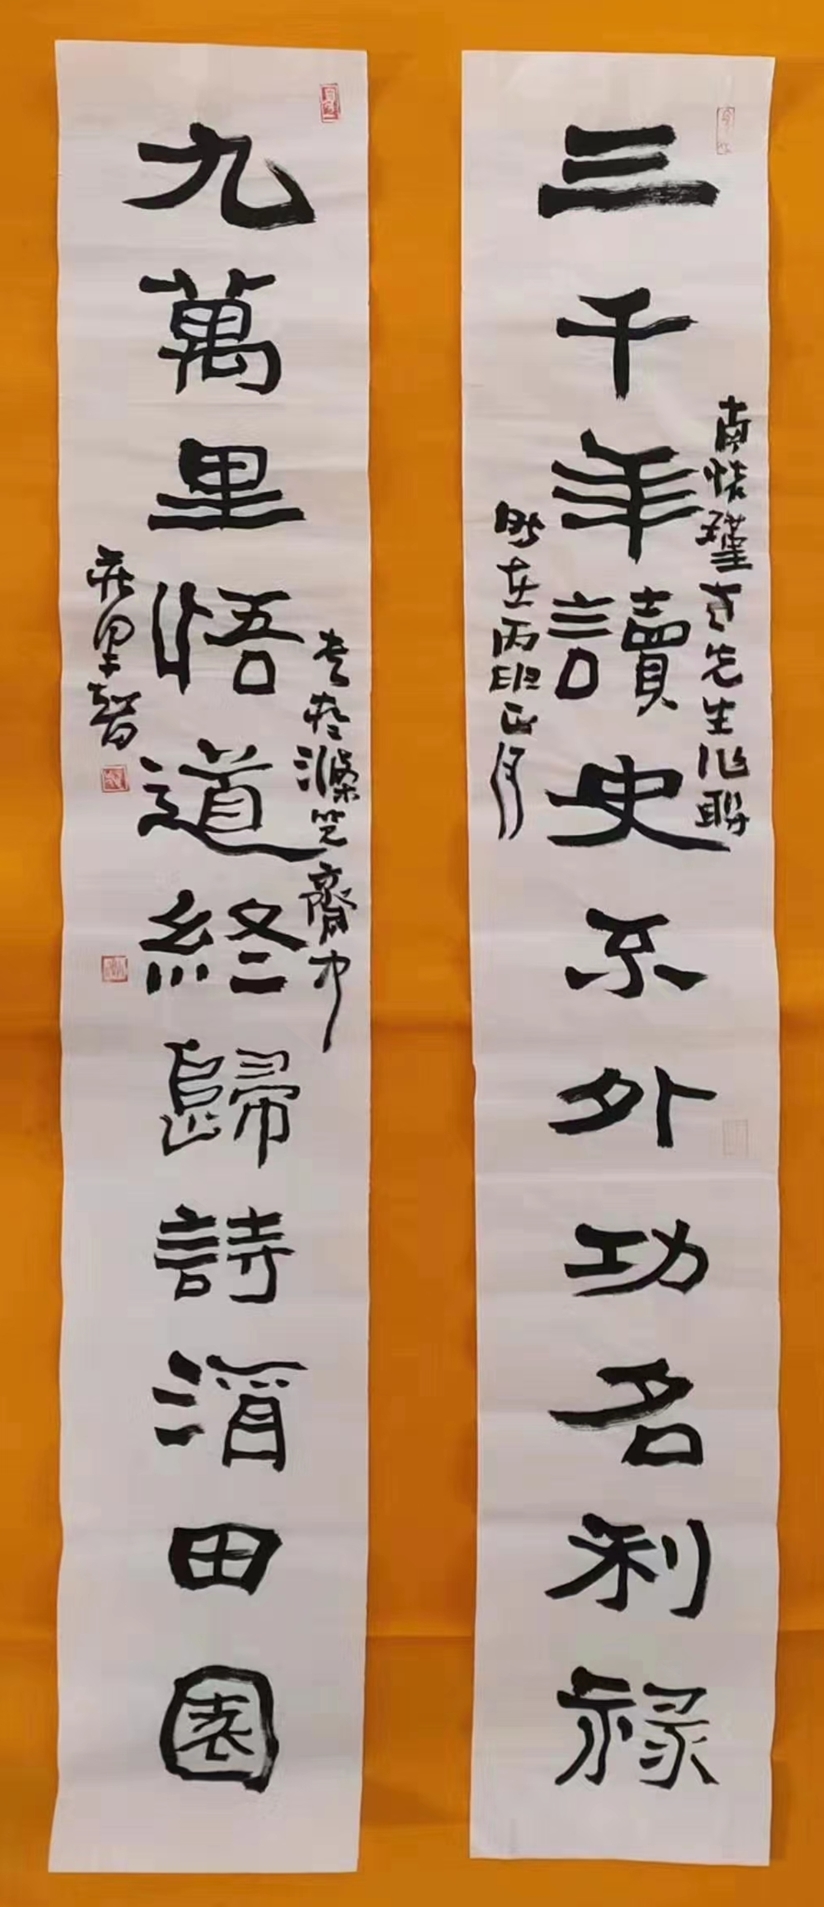 三千年讀史不外功名利禄
南懷瑾老先生作聯
時在丙正月
九萬里悟道終歸詩酒田園
於齋中